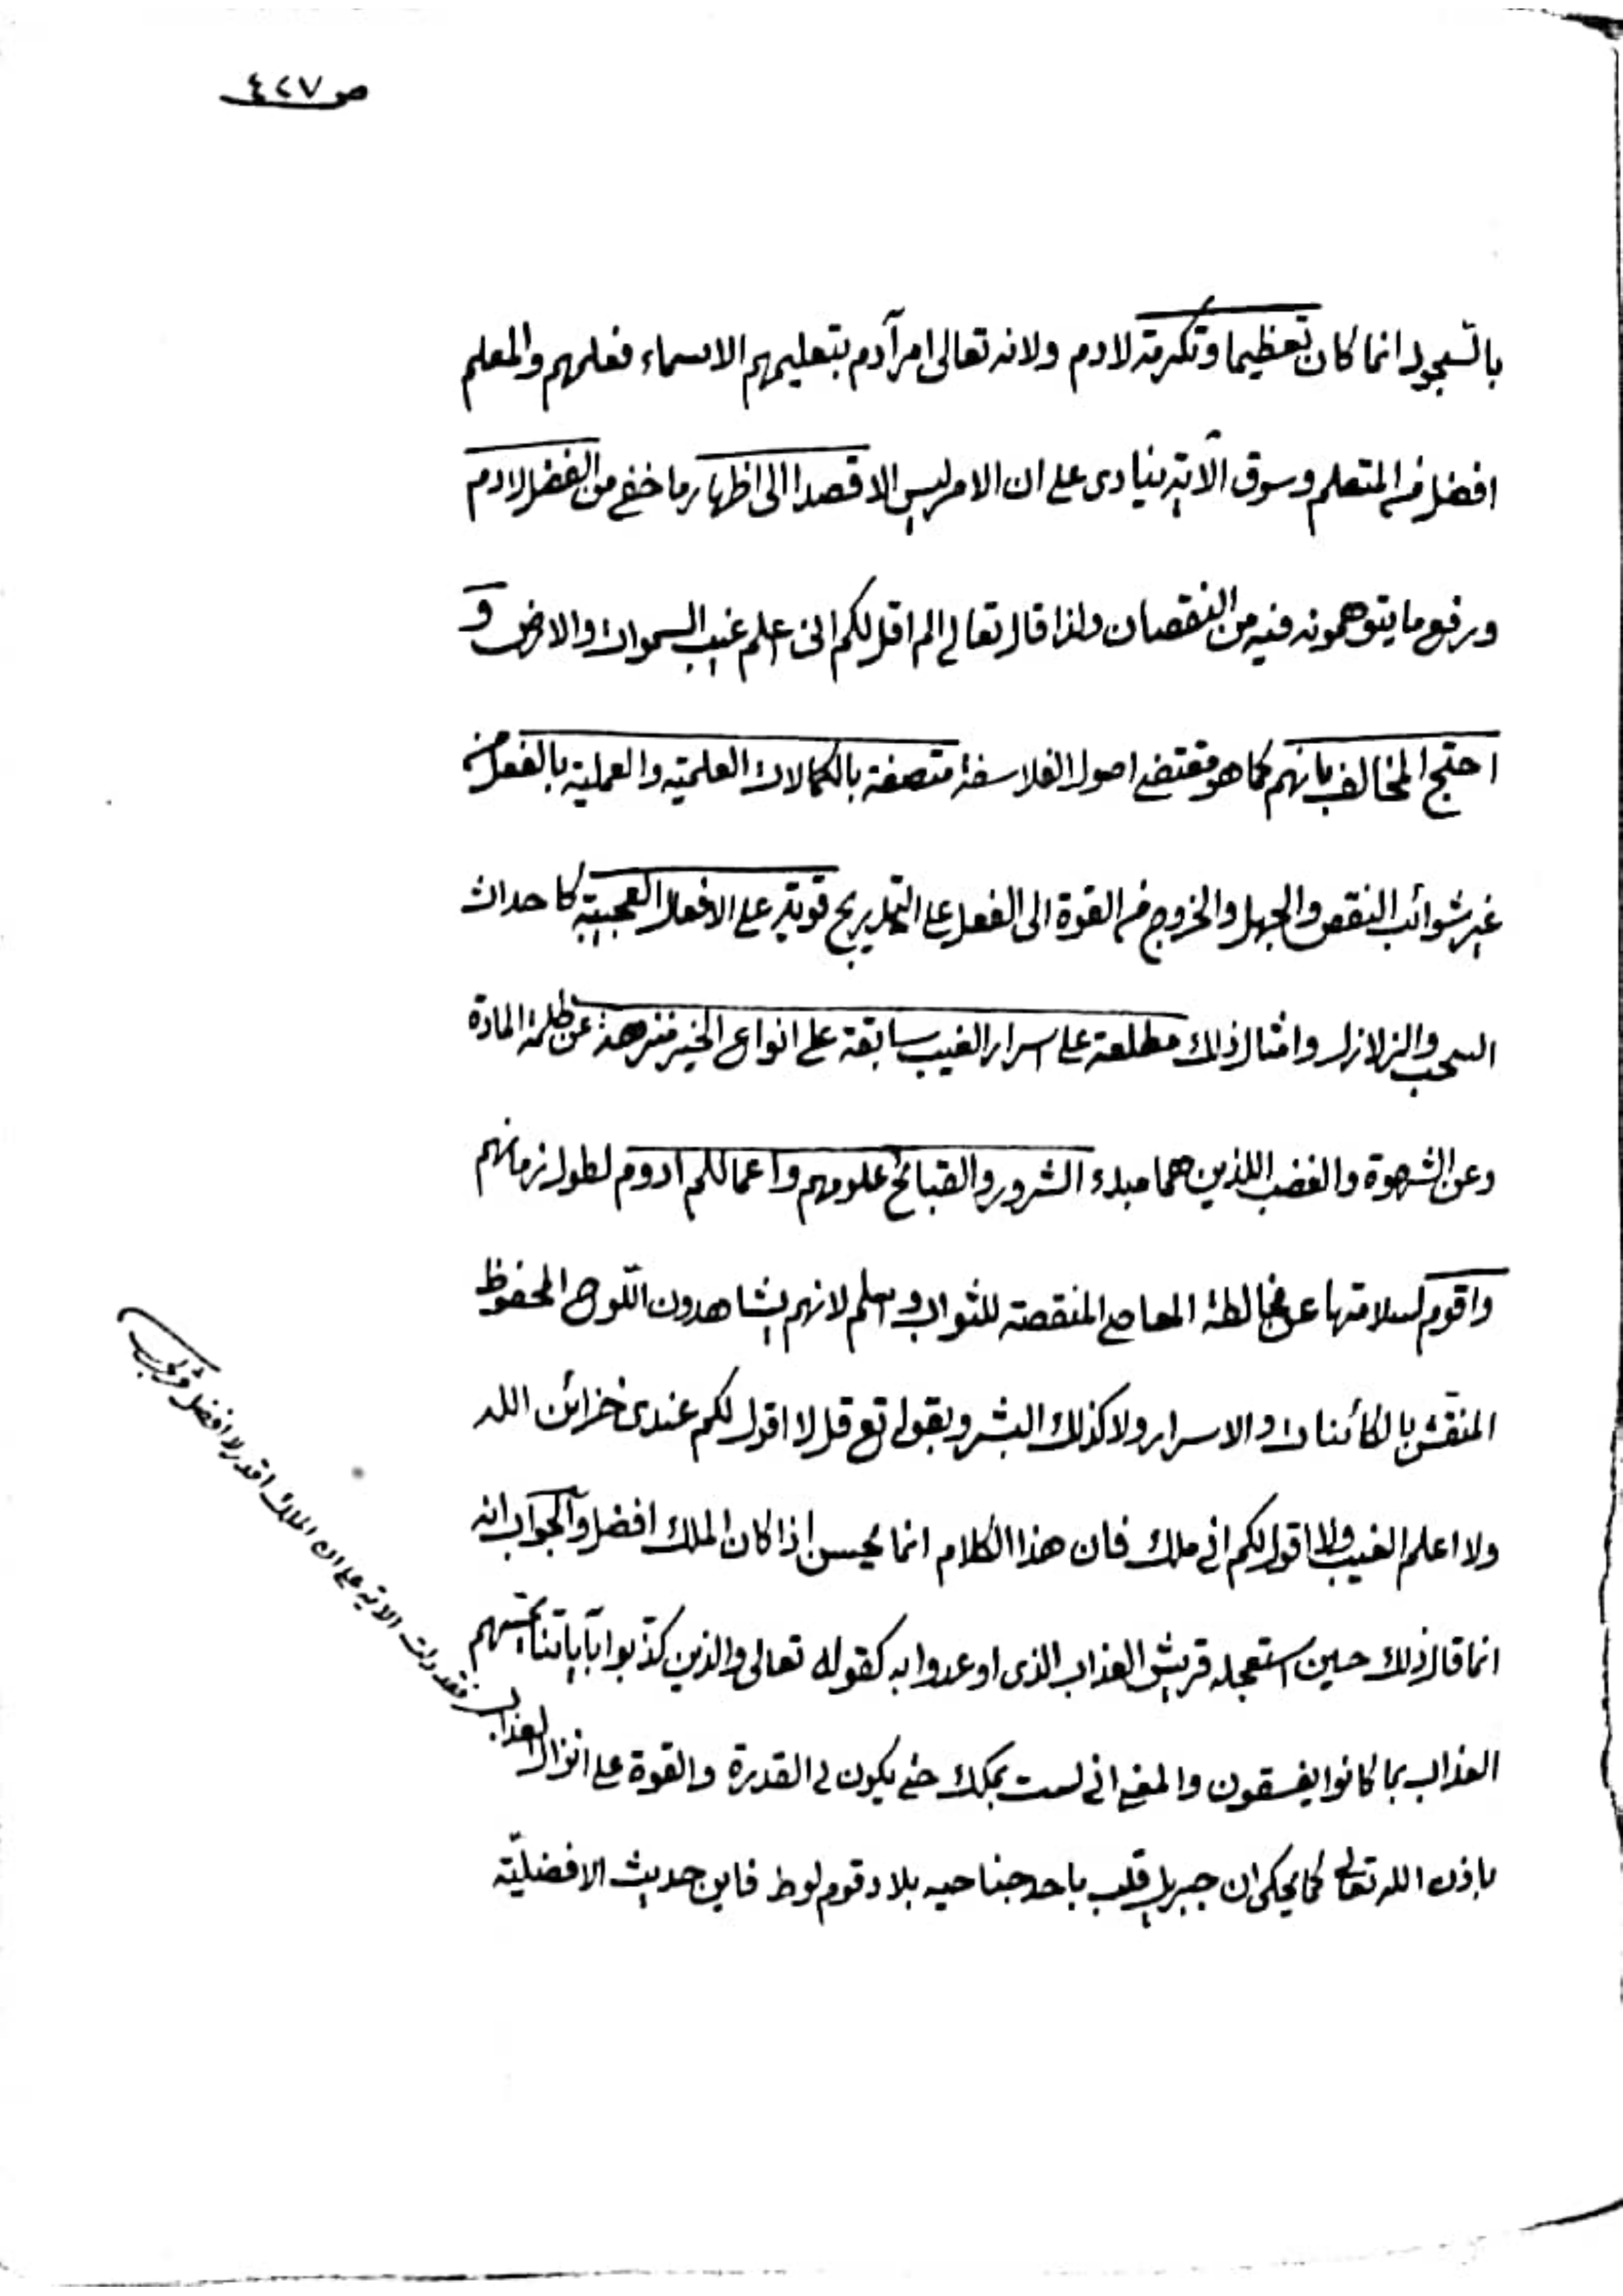 ص ٤٢٧
بالسّجود انما كان تعظيما وتكرمة لادم ولانه تعالى امر آدم بتعليمهم الاسماء فعلمهم والمعلم
افضل من المتعلم وسوق الآية ينادى على ان الامر ليس الا قصدا الى اظهار ما خفى من الفضل لادم
ورفع ما يتوهمونه فيه من النقصان ولذا قال تعالى الم اقل لكم انى اعلم غيب السموات والارض و
احتج المخالف بانهم كما هو مقتضى اصول الفلاسفة متصفة بالكمالات العلمية والعملية بالفعل من
غير شوائب النقص والجهل والخروج من القوة الى الفعل على التدريج قوية على الافعال العجيبة كاحداث
السحب والزلازل وامثال ذلك مطلعة على اسرار الغيب سابقة على انواع الخير منزهة عن ظلمة المادة
وعن الشهوة والغضب اللذين هما مبدء الشرور والقبائح علومهم واعمالكم ادوم لطول زمانهم
واقوم لسلامتها عن مخالطة المعاصى المنقصة للثواب واعلم لانهم يشاهدون اللّوح المحفوظ
المنقش بالكائنات والاسرار ولا كذلك البشر وبقوله تع قل لا اقول لكم عندى خزائن الله
ولا اعلم الغيب ولا اقول لكم انى ملك فان هذا الكلام انما يحسن اذا كان الملك افضل والجواب انه
انما قال ذلك حين استعجله قريش العذاب الذى اوعدوا به كقوله تعالى والذين كذّبوا بآياتنا يمسّهم
العذاب بما كانوا يفسقون والمعنى انى لست بملك حتى يكون لى القدرة والقوة على انزال العذاب
باذن الله تعالى كما يحكى ان جبريل قلب باحد جناحيه بلاد قوم لوط فاين حديث الافضليّة
فقد دلت الاية على ان الملك اقدر لا افضل